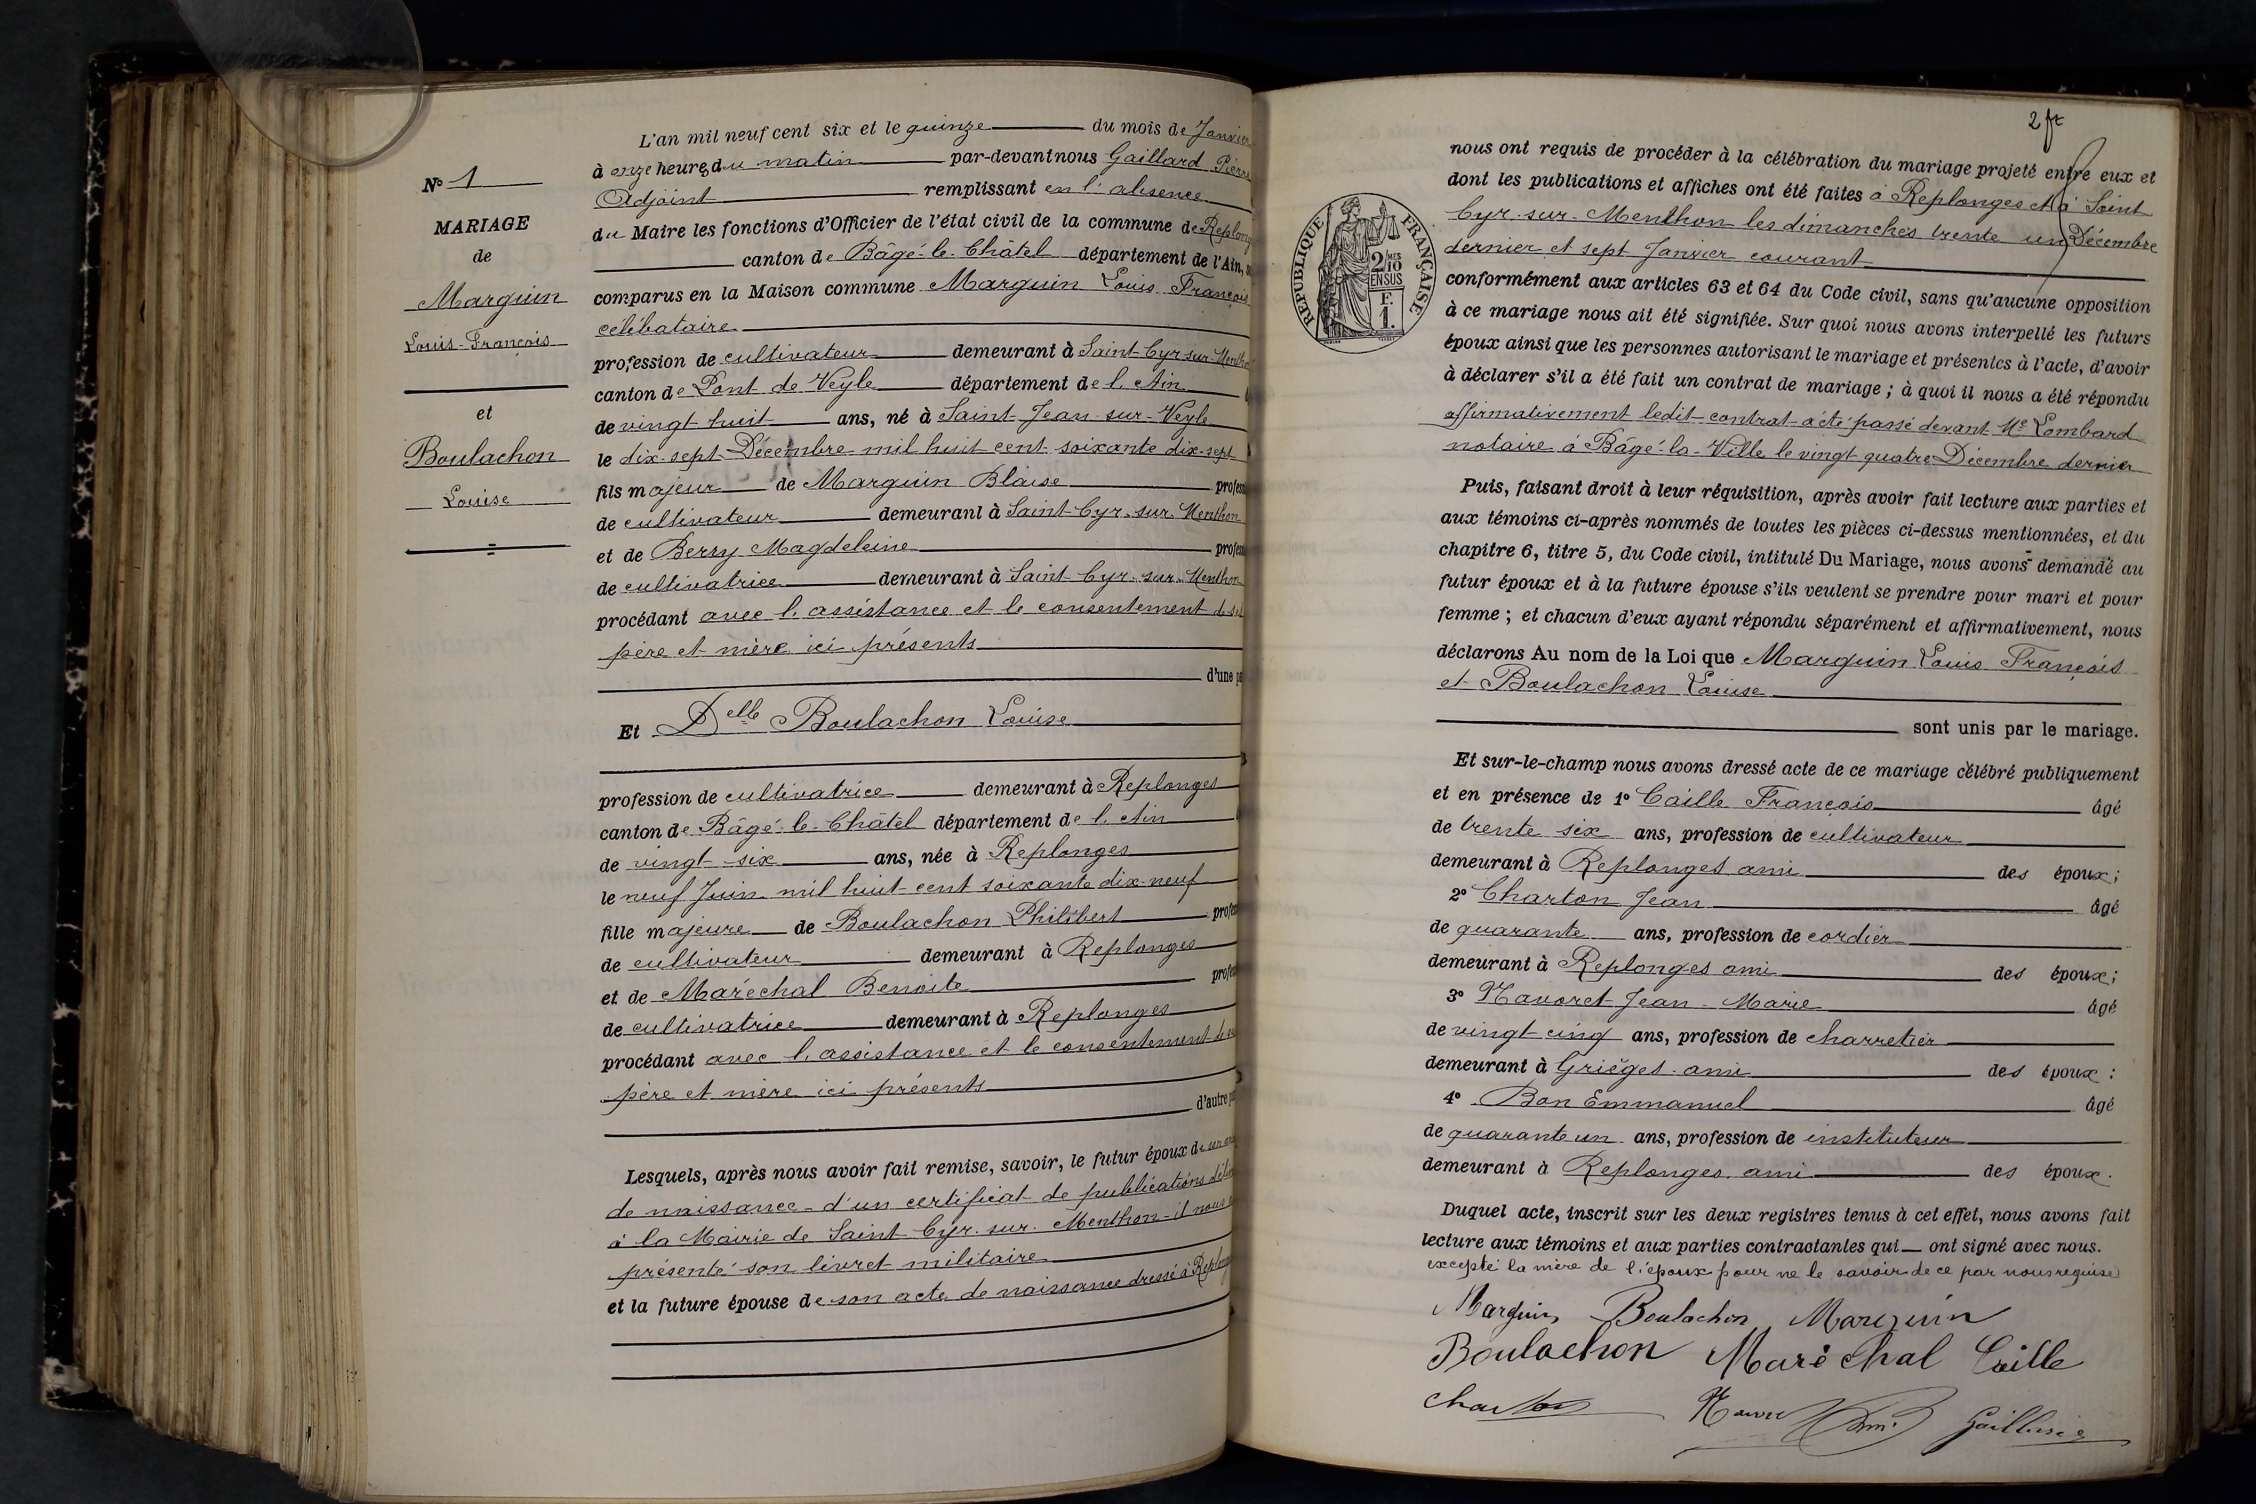 N° 1
MARIAGE
de
Marguin
Louis-François
et
Boulachon
Louise
L'an mil neuf cent six et le quinze du mois de Janvier
à onze heures du matin par-devant nous Gaillard Pierre
Adjoint remplissant en l'absence
du Maire les fonctions d'Officier de l'état civil de la commune de Replong
canton de Bâgé-le-Châtel département de l'Ain,
comparus en la Maison commune Marguin Louis François
célibataire
profession de cultivateur demeurant à Saint-Cyr sur Menthon
canton de Pont de Veyle département de l'Ain
de vingt huit ans, né à Saint-Jean-sur-Veyle
le dix-sept Décembre mil huit cent soixante dix-sept
fils majeur de Marguin Blaise profess
de cultivateur demeurant à Saint-Cyr-sur-Menthon
et de Berry Magdeleine profess
de cultivatrice demeurant à Saint-Cyr-sur-Menthon
procédant avec l'assistance et le consentement de ses
père et mère ici présents
d'une p
Et Delle Boulachon Louise
profession de cultivatrice demeurant à Replonges
canton de Bâgé-le-Châtel département de l'Ain
de vingt-six ans, née à Replonges
le neuf Juin mil huit cent soixante dix-neuf
fille majeure de Boulachon Philibert profes
de cultivateur demeurant à Replonges
et de Maréchal Benoite profes
de cultivatrice demeurant à Replonges
procédant avec l'assistance et le consentement de ses
père et mère ici présents
d'autre p
Lesquels, après nous avoir fait remise, savoir, le futur époux de son
de naissance - d'un certificat de publications
à la Mairie de Saint-Cyr-sur-Menthon - il nous a
présenté son livret militaire
et la future épouse de son acte de naissance dressé à Replong
2 ft
nous ont requis de procéder à la célébration du mariage projeté entre eux et
dont les publications et affiches ont été faites à Replonges et à Saint
Cyr-sur-Menthon les dimanches trente un Décembre
dernier et sept Janvier courant
RÉPUBLIQUE FRANÇAISE
2/10 MES
EN SUS
F.
1.
conformément aux articles 63 et 64 du Code civil, sans qu'aucune opposition
à ce mariage nous ait été signifiée. Sur quoi nous avons interpellé les futurs
époux ainsi que les personnes autorisant le mariage et présentes à l'acte, d'avoir
à déclarer s'il a été fait un contrat de mariage ; à quoi il nous a été répondu
affirmativement ledit contrat a été passé devant Me Lombard
notaire à Bâgé-la-Ville le vingt quatre Décembre dernier
Puis, faisant droit à leur réquisition, après avoir fait lecture aux parties et
aux témoins ci-après nommés de toutes les pièces ci-dessus mentionnées, et du
chapitre 6, titre 5, du Code civil, intitulé Du Mariage, nous avons demandé au
futur époux et à la future épouse s'ils veulent se prendre pour mari et pour
femme ; et chacun d'eux ayant répondu séparément et affirmativement, nous
déclarons Au nom de la Loi que Marguin Louis François
et Boulachon Louise
sont unis par le mariage.
Et sur-le-champ nous avons dressé acte de ce mariage célébré publiquement
et en présence de 1° Caille François âgé
de trente six ans, profession de cultivateur
demeurant à Replonges ami des époux ;
2° Charton Jean âgé
de quarante ans, profession de cordier
demeurant à Replonges ami des époux ;
3° Navoret Jean-Marie âgé
de vingt cinq ans, profession de charretier
demeurant à Grièges ami des époux :
4° Bon Emmanuel âgé
de quarante un ans, profession de instituteur
demeurant à Replonges ami des époux.
Duquel acte, inscrit sur les deux registres tenus à cet effet, nous avons fait
lecture aux témoins et aux parties contractantes qui ont signé avec nous.
excepté la mère de l'époux pour ne le savoir de ce par nous requise
Marguin Boulachon Marguin
Boulachon Maréchal Caille
Charton